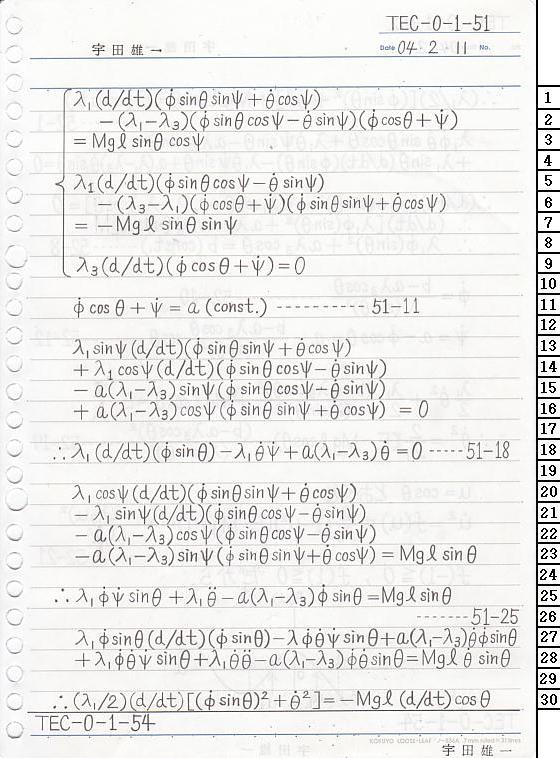 TEC-0-1-51
宇田雄一
Date 04. 2. 11 No.
λ₁(d/dt)(φ̇ sinθ sinψ + θ̇ cosψ)
−(λ₁−λ₃)(φ̇ sinθ cosψ − θ̇ sinψ)(φ̇ cosθ + ψ̇)
= Mgℓ sinθ cosψ
λ₁(d/dt)(φ̇ sinθ cosψ − θ̇ sinψ)
−(λ₃−λ₁)(φ̇ cosθ + ψ̇)(φ̇ sinθ sinψ + θ̇ cosψ)
= −Mgℓ sinθ sinψ
λ₃(d/dt)(φ̇ cosθ + ψ̇) = 0
φ̇ cosθ + ψ̇ = a (const.) ---------- 51-11
λ₁ sinψ (d/dt)(φ̇ sinθ sinψ + θ̇ cosψ)
+ λ₁ cosψ (d/dt)(φ̇ sinθ cosψ − θ̇ sinψ)
− a(λ₁−λ₃) sinψ (φ̇ sinθ cosψ − θ̇ sinψ)
+ a(λ₁−λ₃) cosψ (φ̇ sinθ sinψ + θ̇ cosψ) = 0
∴ λ₁(d/dt)(φ̇ sinθ) − λ₁θ̇ψ̇ + a(λ₁−λ₃)θ̇ = 0 -----51-18
λ₁ cosψ (d/dt)(φ̇ sinθ sinψ + θ̇ cosψ)
− λ₁ sinψ (d/dt)(φ̇ sinθ cosψ − θ̇ sinψ)
− a(λ₁−λ₃) cosψ (φ̇ sinθ cosψ − θ̇ sinψ)
− a(λ₁−λ₃) sinψ (φ̇ sinθ sinψ + θ̇ cosψ) = Mgℓ sinθ
∴ λ₁φ̇ψ̇ sinθ + λ₁θ̈ − a(λ₁−λ₃)φ̇ sinθ = Mgℓ sinθ
-------51-25
λ₁φ̇ sinθ (d/dt)(φ̇ sinθ) − λφ̇θ̇ψ̇ sinθ + a(λ₁−λ₃)θ̇φ̇ sinθ
+ λ₁φ̇θ̇ψ̇ sinθ + λ₁θ̇θ̈ − a(λ₁−λ₃)φ̇θ̇ sinθ = Mgℓ θ̇ sinθ
∴ (λ₁/2)(d/dt)[(φ̇ sinθ)² + θ̇²] = −Mgℓ (d/dt) cosθ
TEC-0-1-54
KOKUYO LOOSE-LEAF
宇田雄一
1
2
3
4
5
6
7
8
9
10
11
12
13
14
15
16
17
18
19
20
21
22
23
24
25
26
27
28
29
30